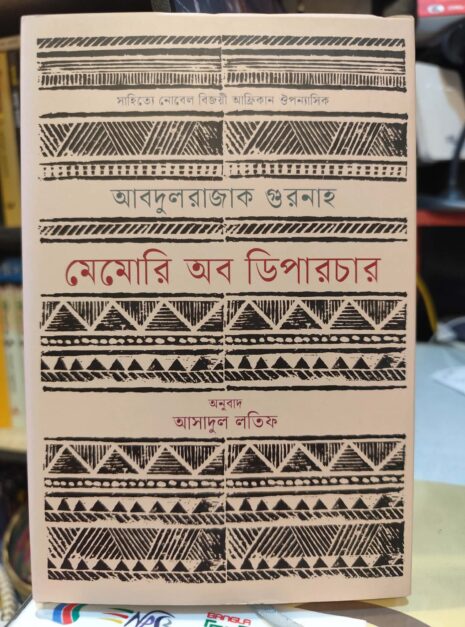 সাহিত্যে নোবেল বিজয়ী আফ্রিকান ঔপন্যাসিক
আবদুলরাজাক গুরনাহ
মেমোরি অব ডিপারচার
অনুবাদ
আসাদুল লতিফ
BANGLA